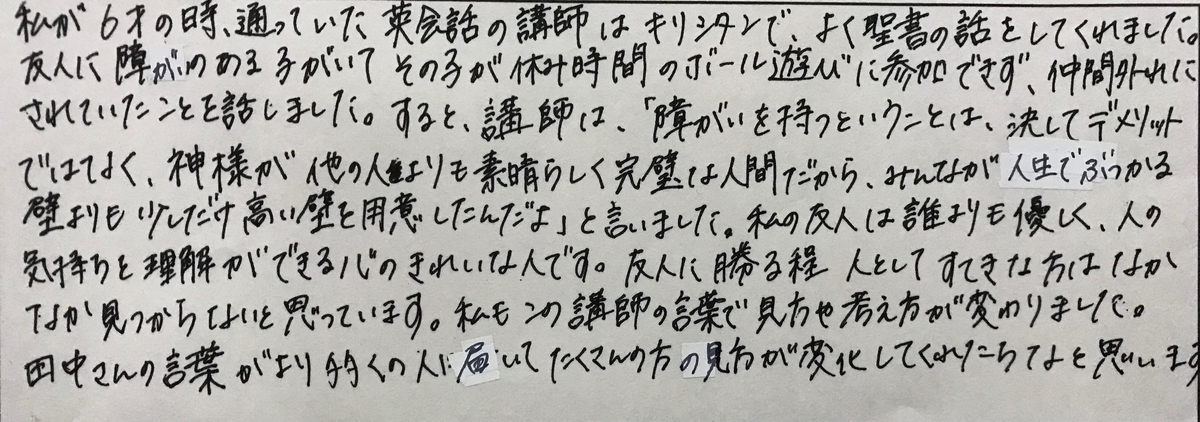 私が6才の時、通っていた英会話の講師はキリシタンで、よく聖書の話をしてくれました。
友人に障がいのある子がいてその子が休み時間のボール遊びに参加できず、仲間外れに
されていたことを話しました。すると、講師は、「障がいを持つということは、決してデメリット
ではなく、神様が他の人よりも素晴らしく完璧な人間だから、みんなが人生でぶつかる
壁よりも少しだけ高い壁を用意したんだよ」と言いました。私の友人は誰よりも優しく、人の
気持ちを理解ができる心のきれいな人です。友人に勝る程人としてすてきな方はなか
なか見つからないと思っています。私もこの講師の言葉で見方や考え方が変わりました。
田中さんの言葉がより多くの人に届いてたくさんの方の見方が変化してくれたらなと思います